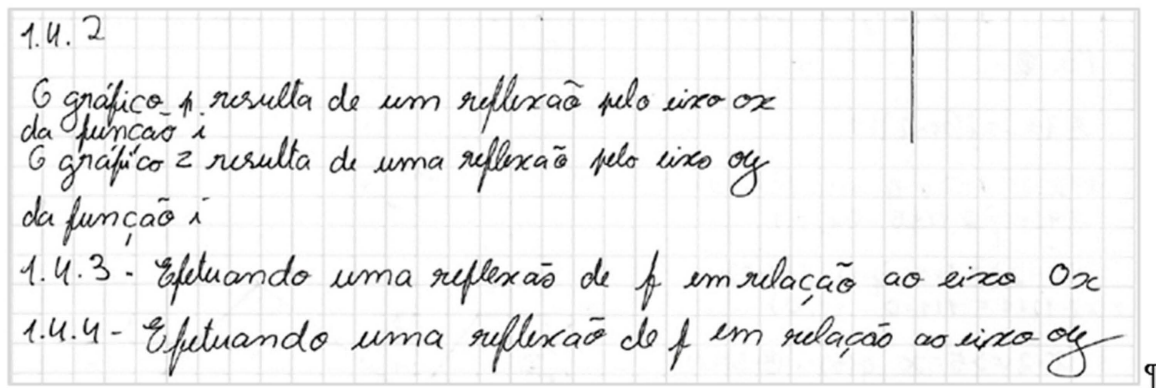 1.4.2
O gráfico p resulta de um reflexão pelo eixo ox
da função i
O gráfico z resulta de uma reflexão pelo eixo oy
da função i
1.4.3 - Efetuando uma reflexão de f em relação ao eixo Ox
1.4.4 - Efetuando uma reflexão de f em relação ao eixo oy
¶